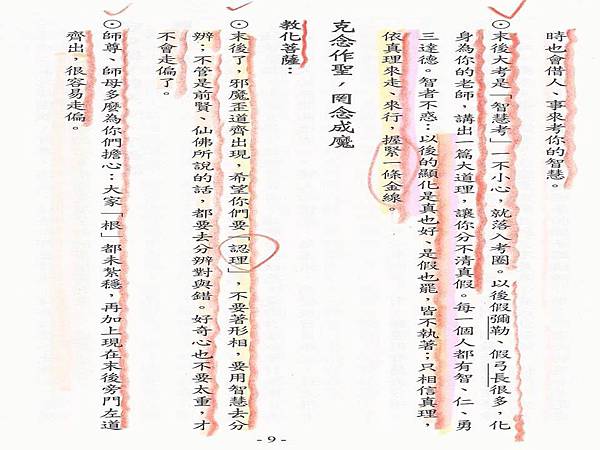 時也會借人、事來考你的智慧。
⊙末後大考是「智慧考」一不小心，就落入考圈。以後假彌勒、假弓長很多，化
身為你的老師，講出一篇大道理，讓你分不清真假。每一個人都有智、仁、勇
三達德。智者不惑：以後的顯化是真也好、是假也罷，皆不執著；只相信真理，
依真理來走、來行，握緊一條金線。
克念作聖，罔念成魔
教化菩薩：
⊙末後了，邪魔歪道齊出現，希望你們要「認理」，不要著形相，要用智慧去分
辨；不管是前賢、仙佛所說的話，都要去分辨對與錯。好奇心也不要太重，才
不會走偏了。
⊙師尊、師母多麼為你們擔心：大家「根」都未紮穩，再加上現在末後旁門左道
齊出，很容易走偏。
- 9 -